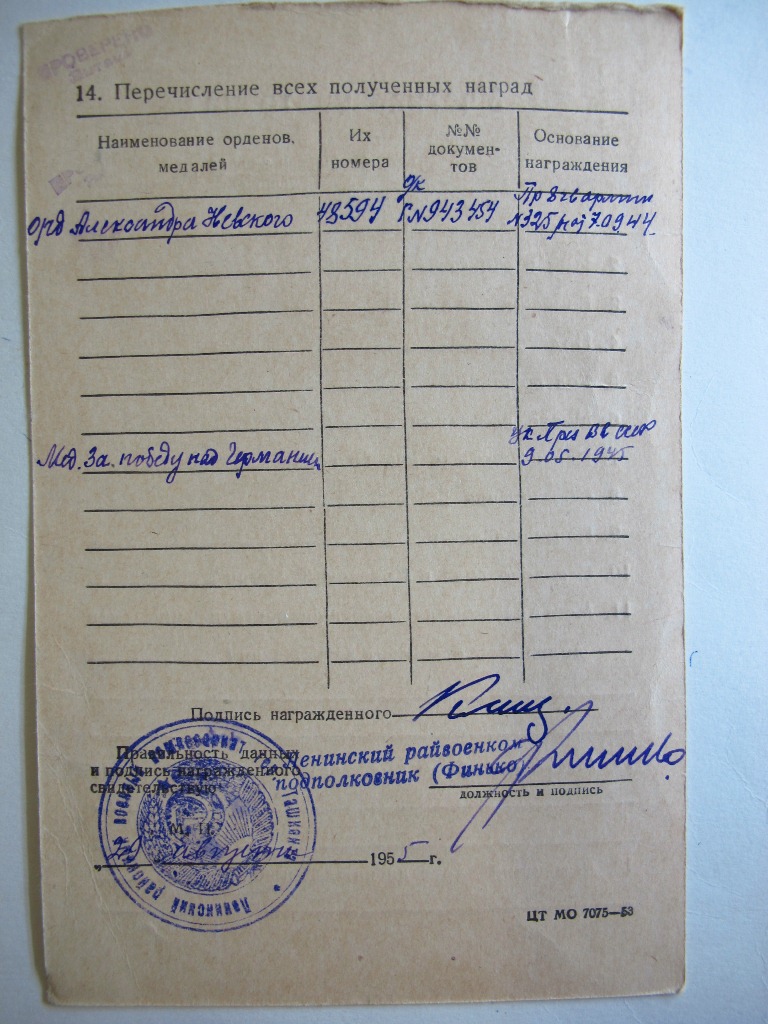 ПРОВЕРЕНО
14. Перечисление всех полученных наград
Наименование орденов, медалей
Их номера
№№ документов
Основание награждения
орд Александра Невского 48594 о/к Г№943454 Пр 8 гв армии
№325/н от 7.09.44
Мед. За победу над Германией Ук През ВС СССР
9.05.1945
Подпись награжденного
Правильность данных
и подпись награжденного
свидетельствую
Ленинский райвоенком
подполковник (Финько)
должность и подпись
М. П.
августа 1955 г.
Ленинский районный военный Ташкент
ЦТ МО 7075—53